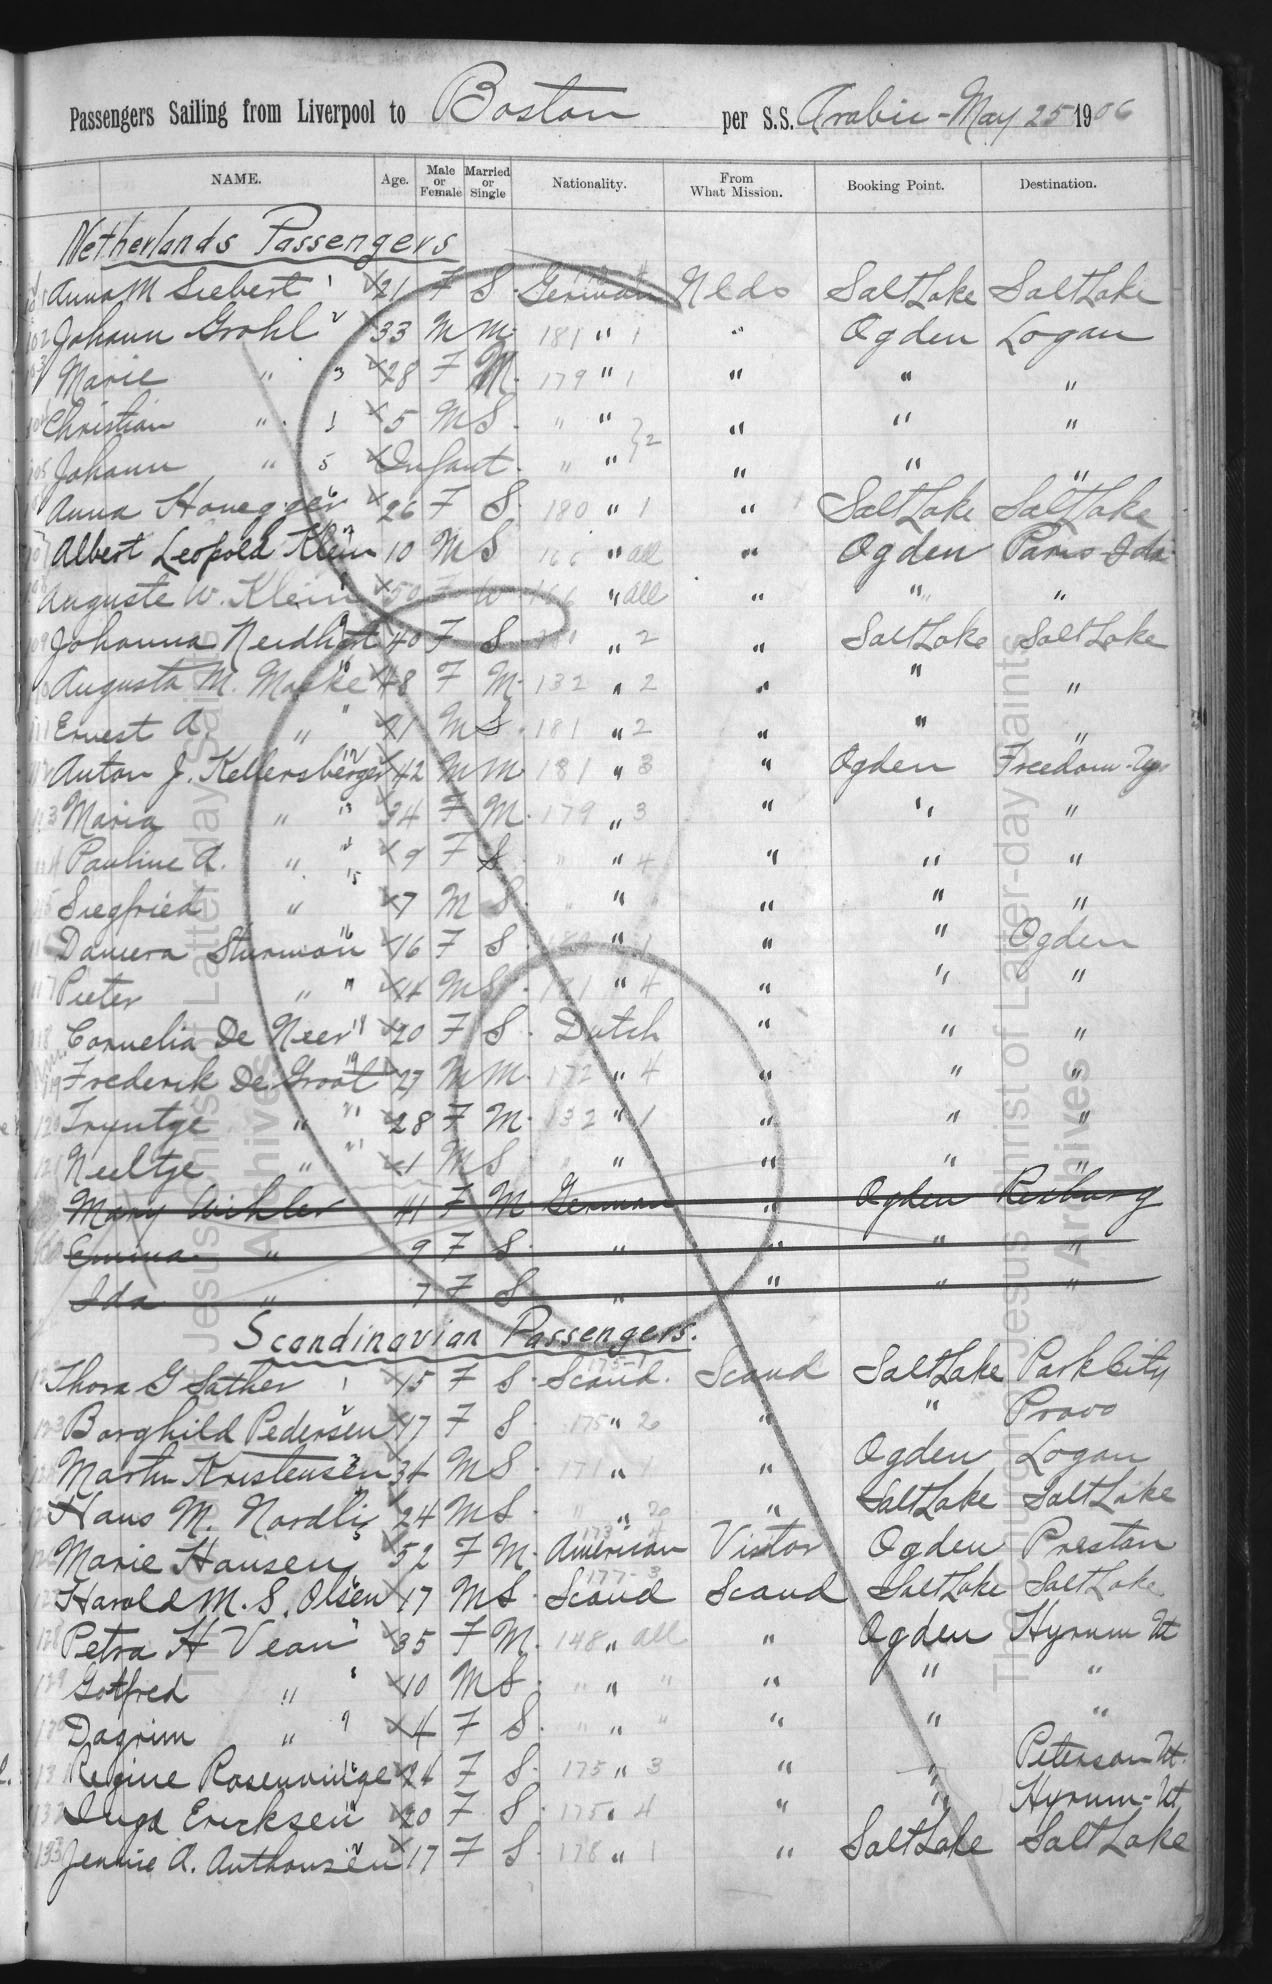 Passengers Sailing from Liverpool to Boston per S.S. Arabic - May 25 1906
NAME. Age. Male or Female Married or Single Nationality. From What Mission. Booking Point. Destination.
Netherlands Passengers
101 Anna M Siebert 1 x 21 F S. German Nlds Salt Lake Salt Lake
102 Johann Grohl 2 x 33 M M. 181 " 1 " Ogden Logan
103 Marie " 3 x 28 F M. 179 " 1 " " "
104 Christian " x 5 M S. " " } 2 " " "
105 Johann " 5 x Infant. " " " " "
Anna Honegger 6 x 26 F S. 180 " 1 " Salt Lake Salt Lake
107 Albert Leopold Klein 7 10 M S 166 " all " Ogden Paris Ida.
108 Auguste W. Klein x 50 F W 166 " all " " "
109 Johanna Neidhart x 40 F S " 2 " Salt Lake Salt Lake
110 Augusta M. Maske x 48 F M. 132 " 2 " " "
111 Ernest A. " " x 11 M S. 181 " 2 " " "
112 Anton J. Kellersberger 12 x 42 M M 181 " 3 " Ogden Freedom Wyo
113 Maria " 13 x 34 F M. 179 " 3 " " "
114 Pauline A. " x 9 F S " " 4 " " "
115 Siegfried " 15 x 7 M S. " " " " "
Damera Sturmon 16 x 16 F S. " 1 " " Ogden
117 Pieter " x 14 M S. " 4 " " "
118 Cornelia De Neer 18 x 20 F S. Dutch " " "
119 Frederik De Groot 19 x 27 M M. 172 " 4 " " "
120 Tryntge " x 28 F M. 132 " 1 " " "
121 Neeltje " x 1 M S. " " " "
Mary Wikler 41 F M German " Ogden Rexburg
Emma " 9 F S. " " " "
Ida " 7 F S. " " " "
Scandinavian Passengers.
Thora G Sather 1 x 15 F S. 175-1 Scand. Scand Salt Lake Park City
123 Borghild Pedersen 2 x 17 F S. 175 " 2 " " Provo
Martin Kristensen x 34 M S. 171 " 1 " Ogden Logan
Hans M. Nordli x 24 M S. " " 2 " Salt Lake Salt Lake
Marie Hansen x 52 F M. American Visitor Ogden Preston
Harold M. S. Olsen x 17 M S. 177-3 Scand Scand Salt Lake Salt Lake
128 Petra H Vean x 35 F M. 148 " all " Ogden Hyrum Ut
129 Gotfred " x 10 M S. " " " " " "
130 Dagrim " 9 x 4 F S. " " " " " "
Regine Rosenvinge x 26 F S. 175 " 3 " " Peterson Ut.
132 Inga Ericksen x 20 F S. 175 " 4 " " Hyrum-Ut
133 Jennie A. Anthonsen x 17 F S. 178 " 1 " Salt Lake Salt Lake
The Church of Jesus Christ of Latter-day Saints
Archives
The Church of Jesus Christ of Latter-day Saints
Archives